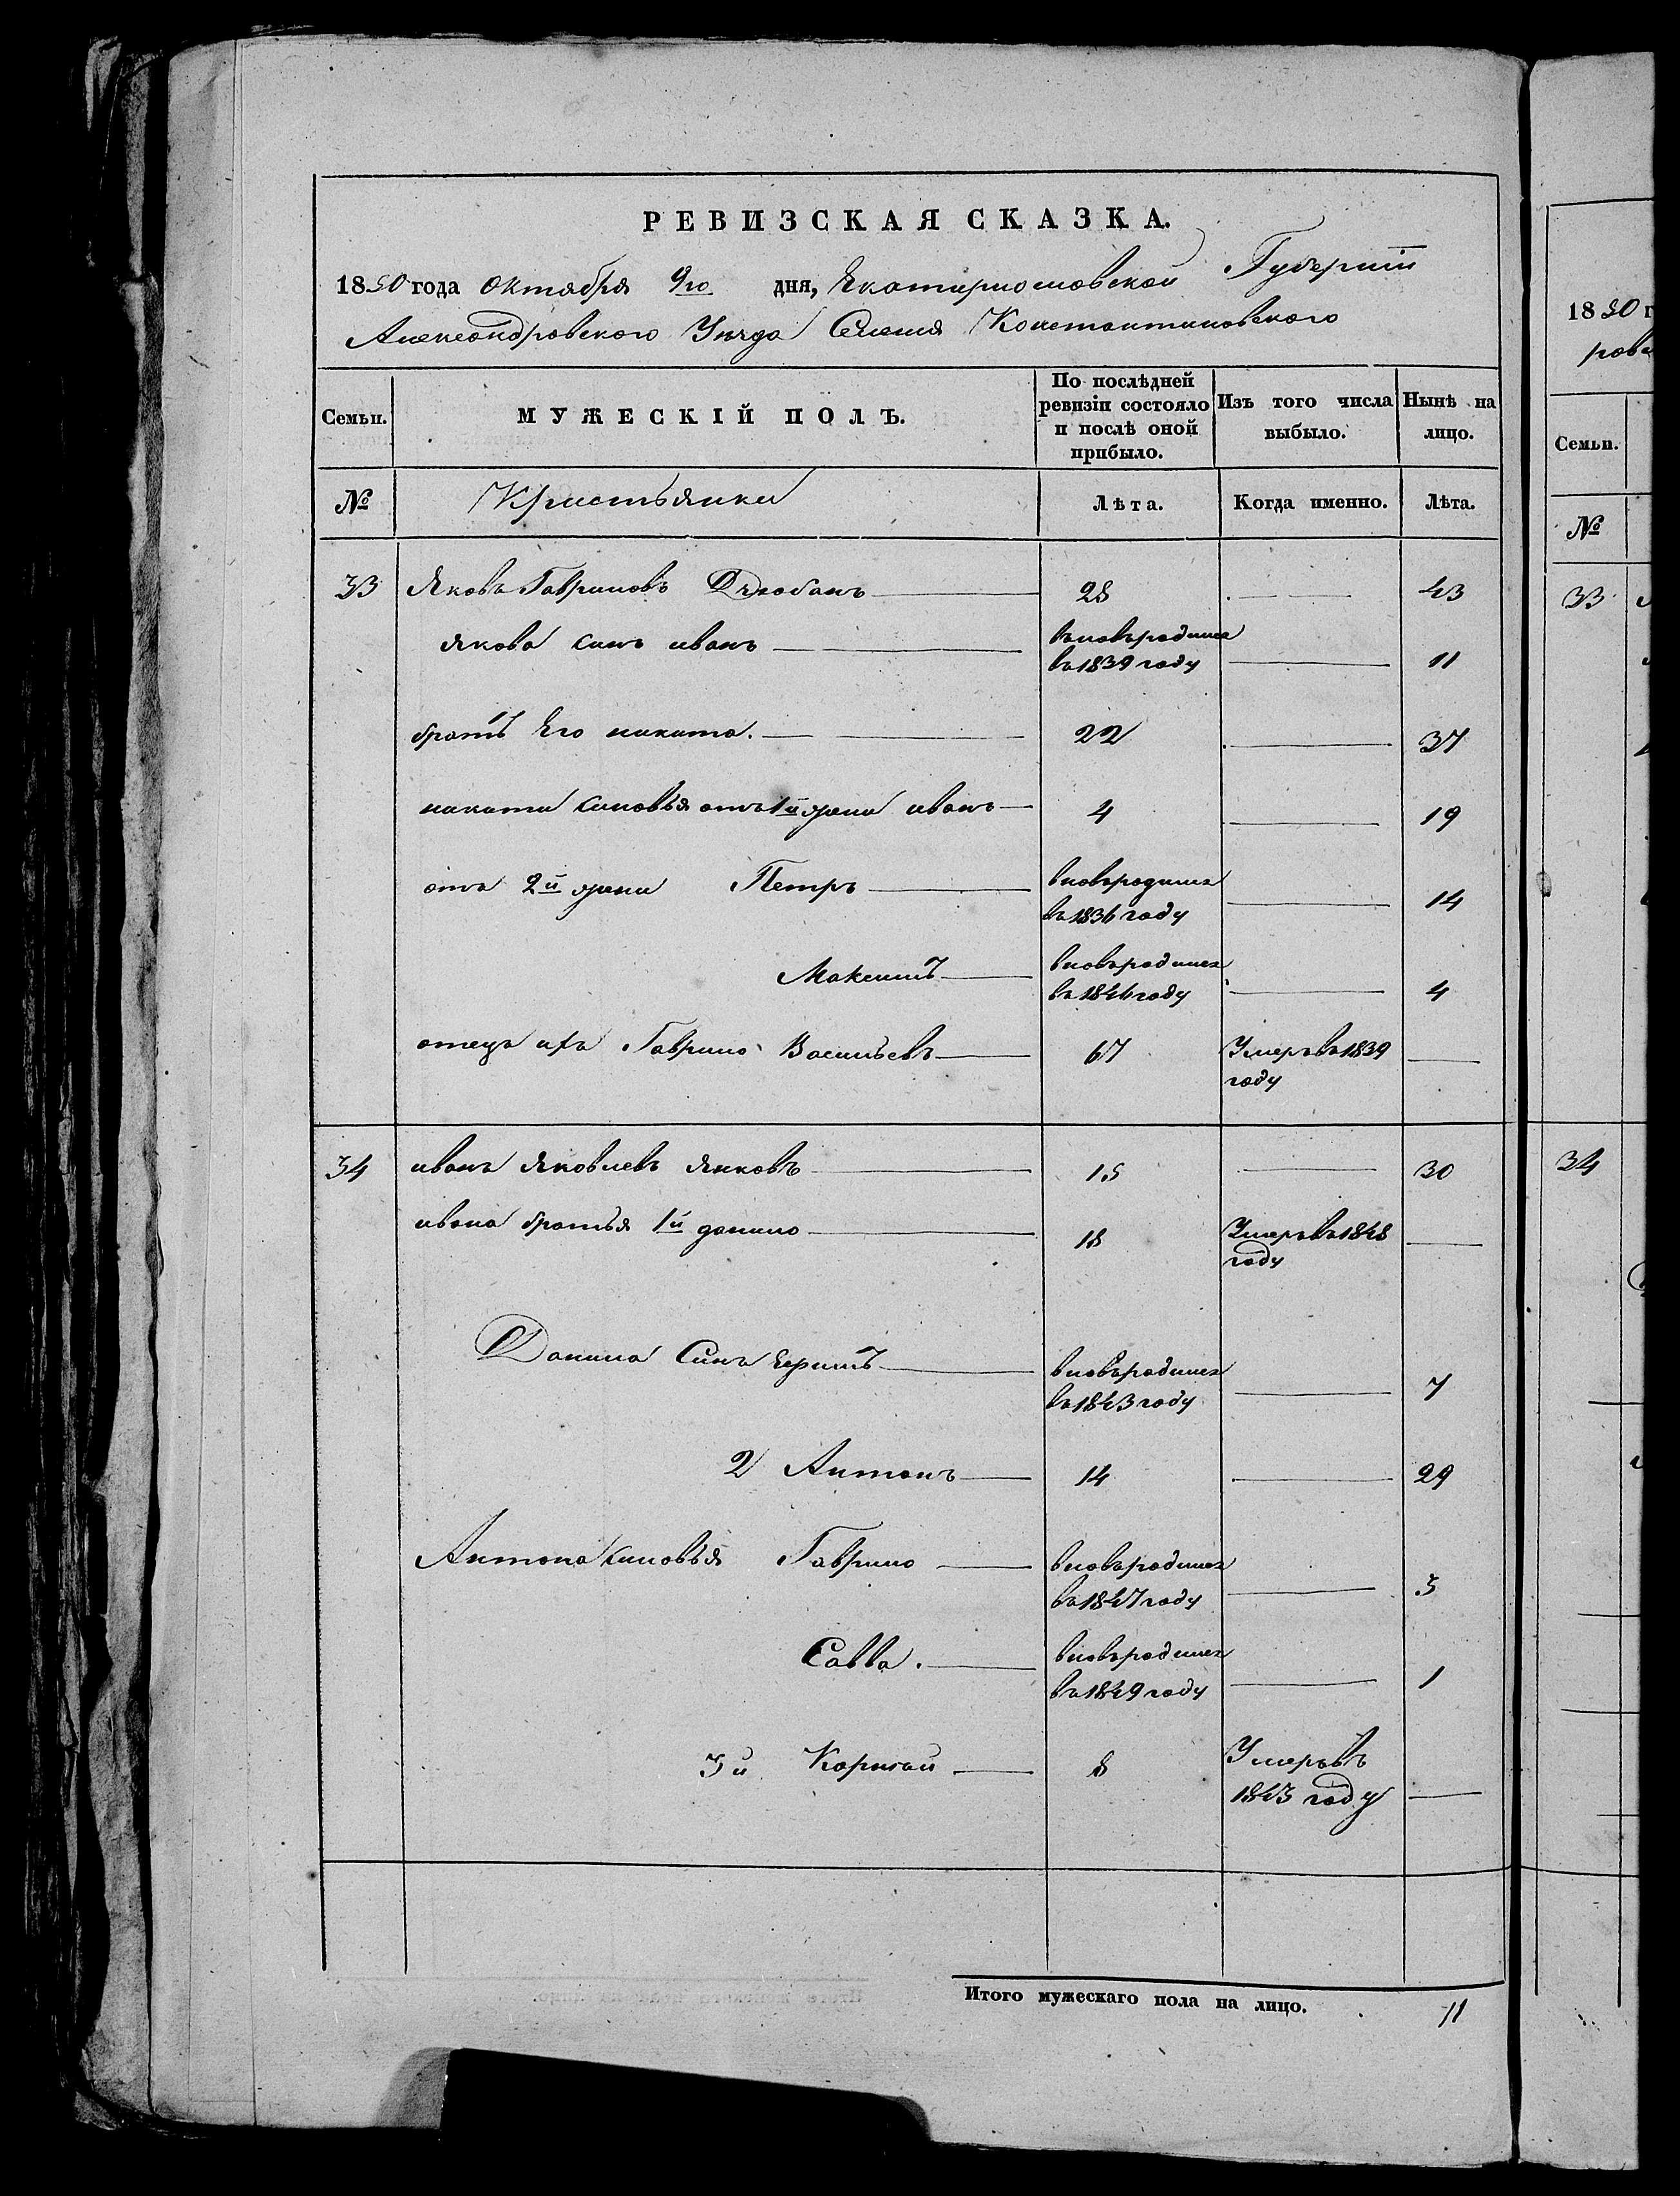 РЕВИЗСКАЯ СКАЗКА.
1850 года октября 9го дня, Екатеринославской Губернии
Александровского Уезда Селения Константиновского
Семьи.
МУЖЕСКІЙ ПОЛЪ.
По послѣдней
ревизіи состояло
и послѣ оной
прибыло.
Изъ того числа
выбыло.
Нынѣ на
лицо.
№ Кристьянки Лѣта. Когда именно. Лѣта.
33 Яковъ Гавриловъ 28 43
Якова синъ иванъ вновьродился
въ 1839 году 11
братъ Его никита. 22 37
никити синовья отъ 1й жени иванъ 4 19
отъ 2й жени Петръ вновьродился
въ 1836 году 14
Максимъ вновьродился
въ 1846 году 4
отецъ ихъ Гаврило Васильевъ 67 Умеръ въ 1839
году
34 иванъ Яковлевъ Янковъ 15 30
ивана братья 1й данило 18 Умеръ въ 1848
году
Данила Синъ Ефимъ вновьродился
въ 1843 году 7
2 Антонъ 14 29
Антона синовья Гаврило вновьродился
въ 1847 году 3
Савва. вновьродился
въ 1849 году 1
3й Корнѣй 8 Умеръ въ
1843 году
Итого мужескаго пола на лицо. 11
18 50 г
Семьи.
№
33
34